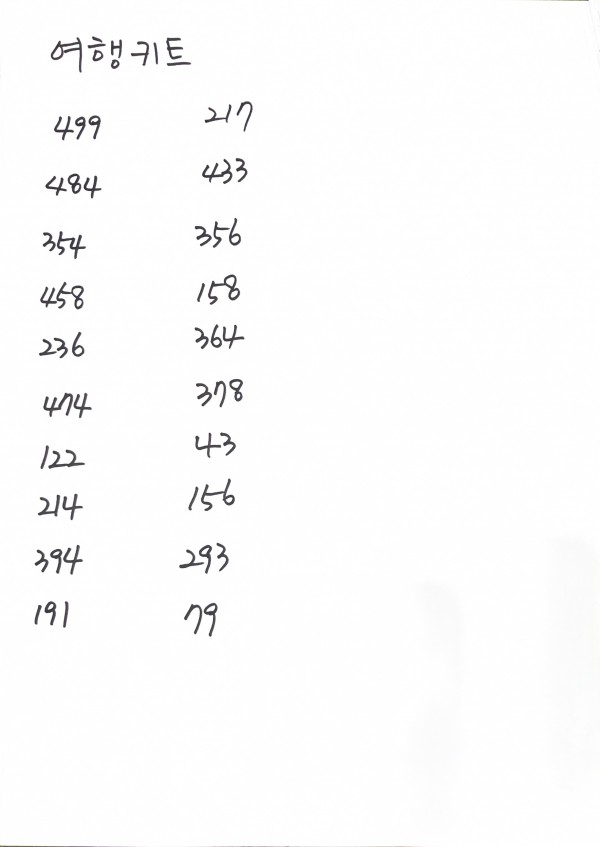 여행키트
499 217
484 433
354 356
458 158
236 364
474 378
122 43
214 156
394 293
191 79